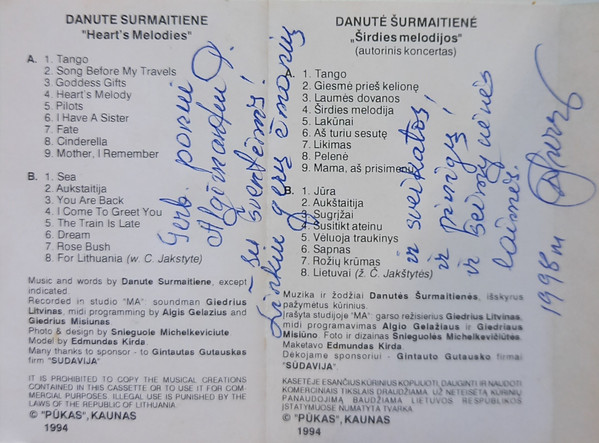 DANUTE SURMAITIENE
"Heart's Melodies"
A. 1. Tango
2. Song Before My Travels
3. Goddess Gifts
4. Heart's Melody
5. Pilots
6. I Have A Sister
7. Fate
8. Cinderella
9. Mother, I Remember
B. 1. Sea
2. Aukstaitija
3. You Are Back
4. I Come To Greet You
5. The Train Is Late
6. Dream
7. Rose Bush
8. For Lithuania (w. C. Jakstyte)
Music and words by Danute Surmaitiene, except
indicated
Recorded in studio "MA" soundman Giedrius
Litvinas, midi programming by Algis Gelazius and
Giedrius Misiunas
Photo & design by Snieguole Michelkeviciute
Model by Edmundas Kirda
Many thanks to sponsor - to Gintautas Gutauskas
firm "SUDAVIJA"
IT IS PROHIBITED TO COPY THE MUSICAL CREATIONS
CONTAINED IN THIS CASSETTE OR TO USE IT FOR COM-
MERCIAL PURPOSES. ILLEGAL USE IS PUNISHED BY THE
LAWS OF THE REPUBLIC OF LITHUANIA
© "PŪKAS", KAUNAS
1994
DANUTĖ ŠURMAITIENĖ
„Širdies melodijos"
(autorinis koncertas)
A. 1. Tango
2. Giesmė prieš kelionę
3. Laumės dovanos
4. Širdies melodija
5. Lakūnai
6. Aš turiu sesutę
7. Likimas
8. Pelenė
9. Mama, aš prisimenu
B. 1. Jūra
2. Aukštaitija
3. Sugrįžai
4. Susitikt ateinu
5. Vėluoja traukinys
6. Sapnas
7. Rožių krūmas
8. Lietuvai (ž. Č. Jakštytės)
Muzika ir žodžiai Danutės Šurmaitienės, išskyrus
pažymėtus kūrinius.
Įrašyta studijoje "MA" garso režisierius Giedrius Litvinas,
midi programavimas Algio Gelažiaus ir Giedriaus
Misiūno. Foto ir dizainas Snieguolės Michelkevičiūtės
Maketavo Edmundas Kirda.
Dėkojame sponsoriui - Gintauto Gutausko firmai
"SŪDAVIJA"
KASETĖJE ESANČIUS KŪRINIUS KOPIJUOTI, DAUGINTI IR NAUDOTI
KOMERCINIAIS TIKSLAIS DRAUDŽIAMA. UŽ NETEISĖTĄ KŪRINIŲ
PANAUDOJIMĄ BAUDŽIAMA LIETUVOS RESPUBLIKOS
ĮSTATYMUOSE NUMATYTA TVARKA
© "PŪKAS", KAUNAS
1994
Gerb. ponui
Algimantui
su šventėmis!
Linkiu gerų žmonių
ir sveikatos,
ir pinigų!
ir šeimyninės
laimės.
1998 m